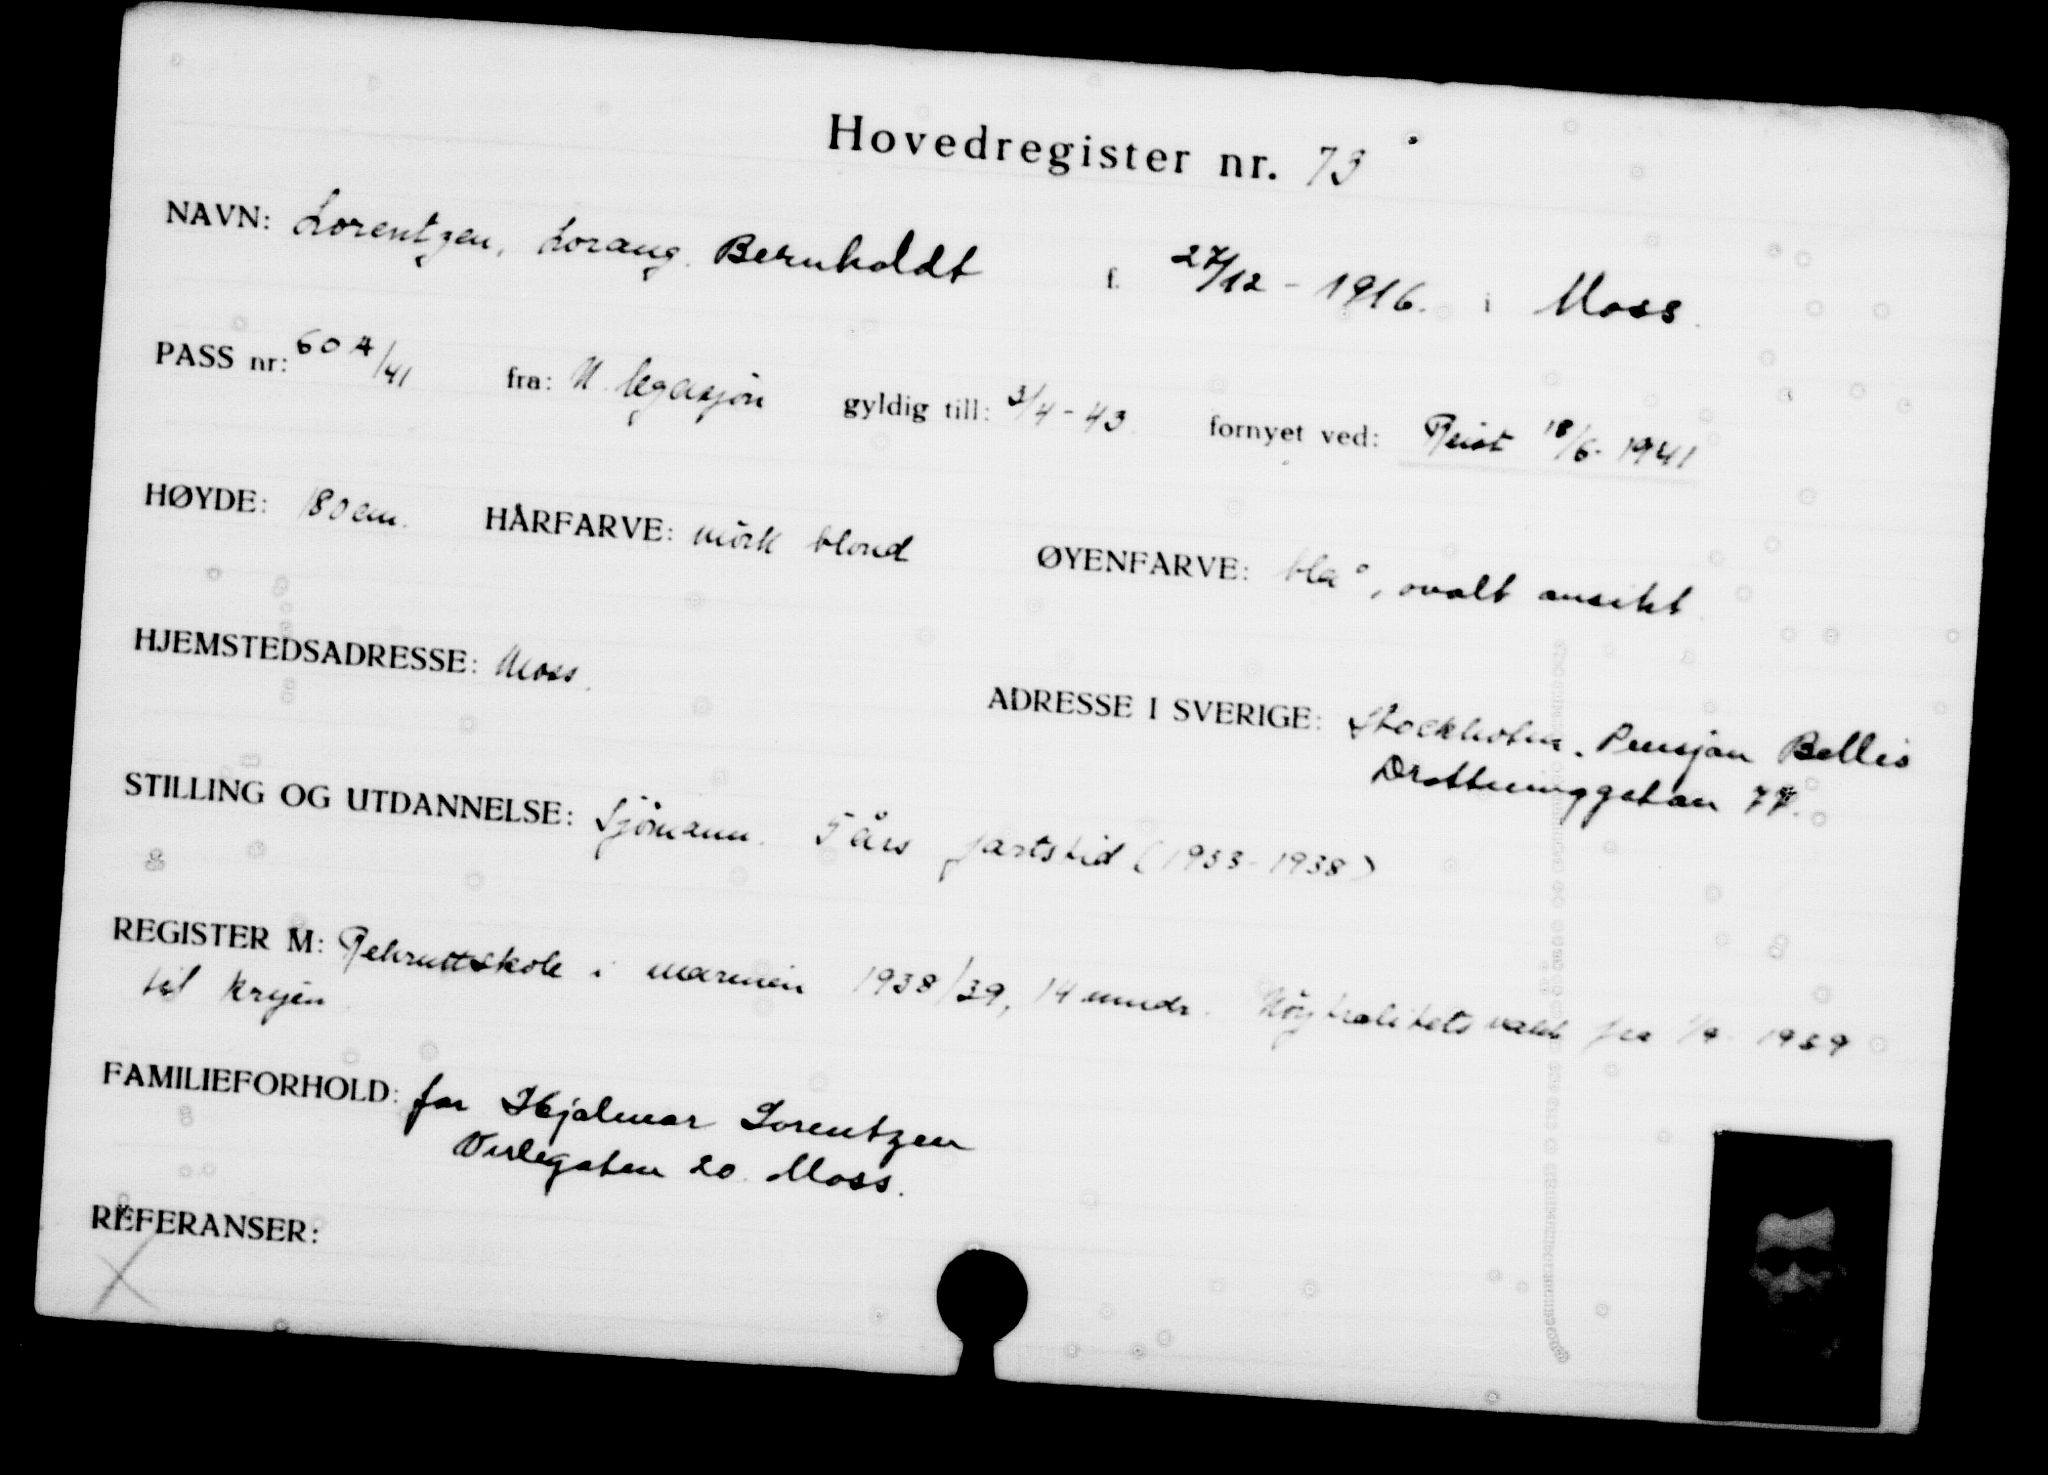 Hovedregister nr. 73
NAVN: Lorentzen, Lorang Bernholdt f. 27/12 - 1916. i Moss.
PASS nr: 604/41 fra: N. legasjon gyldig till: 3/4 - 43. fornyet ved: Reist 18/6. 1941
HØYDE: 180 cm. HÅRFARVE: mörk blond ØYENFARVE: blå, ovalt ansikt.
HJEMSTEDSADRESSE: Moss. ADRESSE I SVERIGE: Stockholm. Pensjon Bellis
Drottninggatan 77.
STILLING OG UTDANNELSE: Sjömann. 5 års fartstid (1933-1938)
REGISTER M: Rekruttskole i marinen 1938/39, 14 mndr. Nöytralitetsvakt fra 1/9 1939
til krigen.
FAMILIEFORHOLD: far Hjalmar Lorentzen
20. Moss.
REFERANSER: